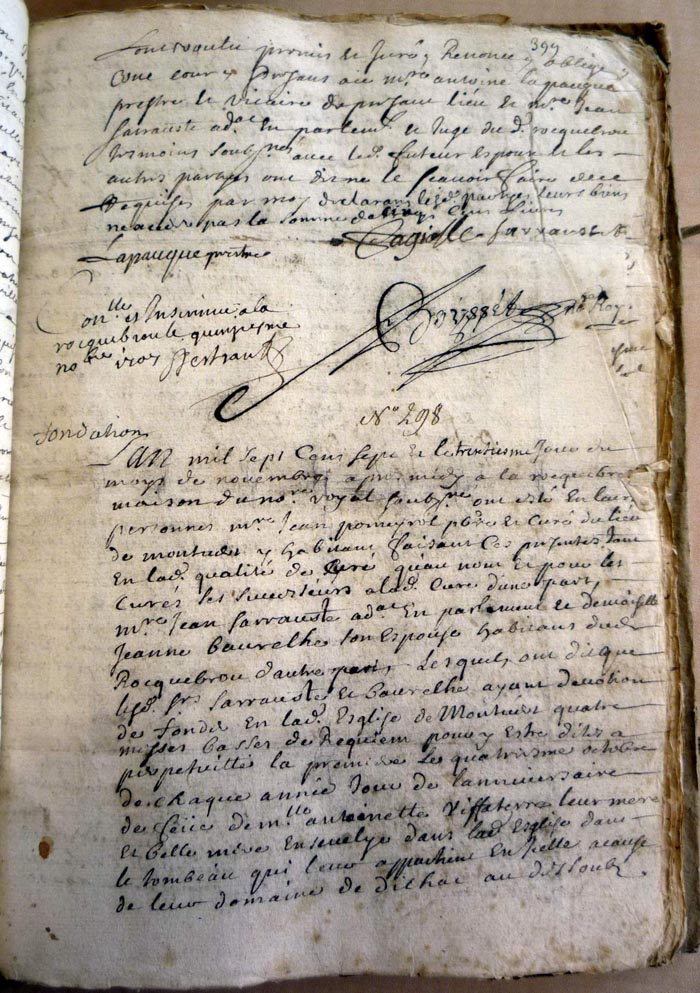 399
ont voulu promis et juré, Renoncé, obligé
presans aud mre antoine lapauque
prestre et vicaire du present lieu et mre Jean
Sarrauste adat En parlemt et Juge du d. rocquebrou
tesmoins soubsnes avec led.
autres parties ont dit ne le scavoir faire de ce
Requises par moy declarans lesd. parties leurs biens
la somme de cinq Cens livres
Cagiolle Sarrauste
Lapauque prestre
Conlle et Insinué a la
rocquebrou le quinziesme
nobre 1707 Bertrand
no Roy
No 298
fondation
L'AN mil sept Cens sept et le trentiesme Jour du
moys de novembre apres midy a la rocquebrou
maison du nore royal soubsne ont esté En leurs
personnes mre Jean pomeyrol pbre et Curé du lieu
de montvert y habitant faisant Ces presentes tant
En lad. qualité de Curé quau nom et pour les
Curés ses successeurs a lad. Cure dune part,
mre Jean Sarrauste adat En parlement et demoiselle
Jeanne Baurelhe son Espouse habitans dud.
Rocquebrou d'autre part, Lesquels ont dit que
lesd. srs Sarrauste et Baurelhe ayant devotion
de fonder En lad. Esglise de Montvert quatre
messes basses de Requiem pour y Estre dites a
perpetuitté la premiere Le quatriesme octobre
de chaque année Jour de Lanniversaire
de feüe demlle antoinette Viffaterre leur mere
Et belle mere Ensevelye dans lad. Esglise dans
le tombeau qui leur appartient En Icelle acause
de leur domaine de dilhac au dessoubz